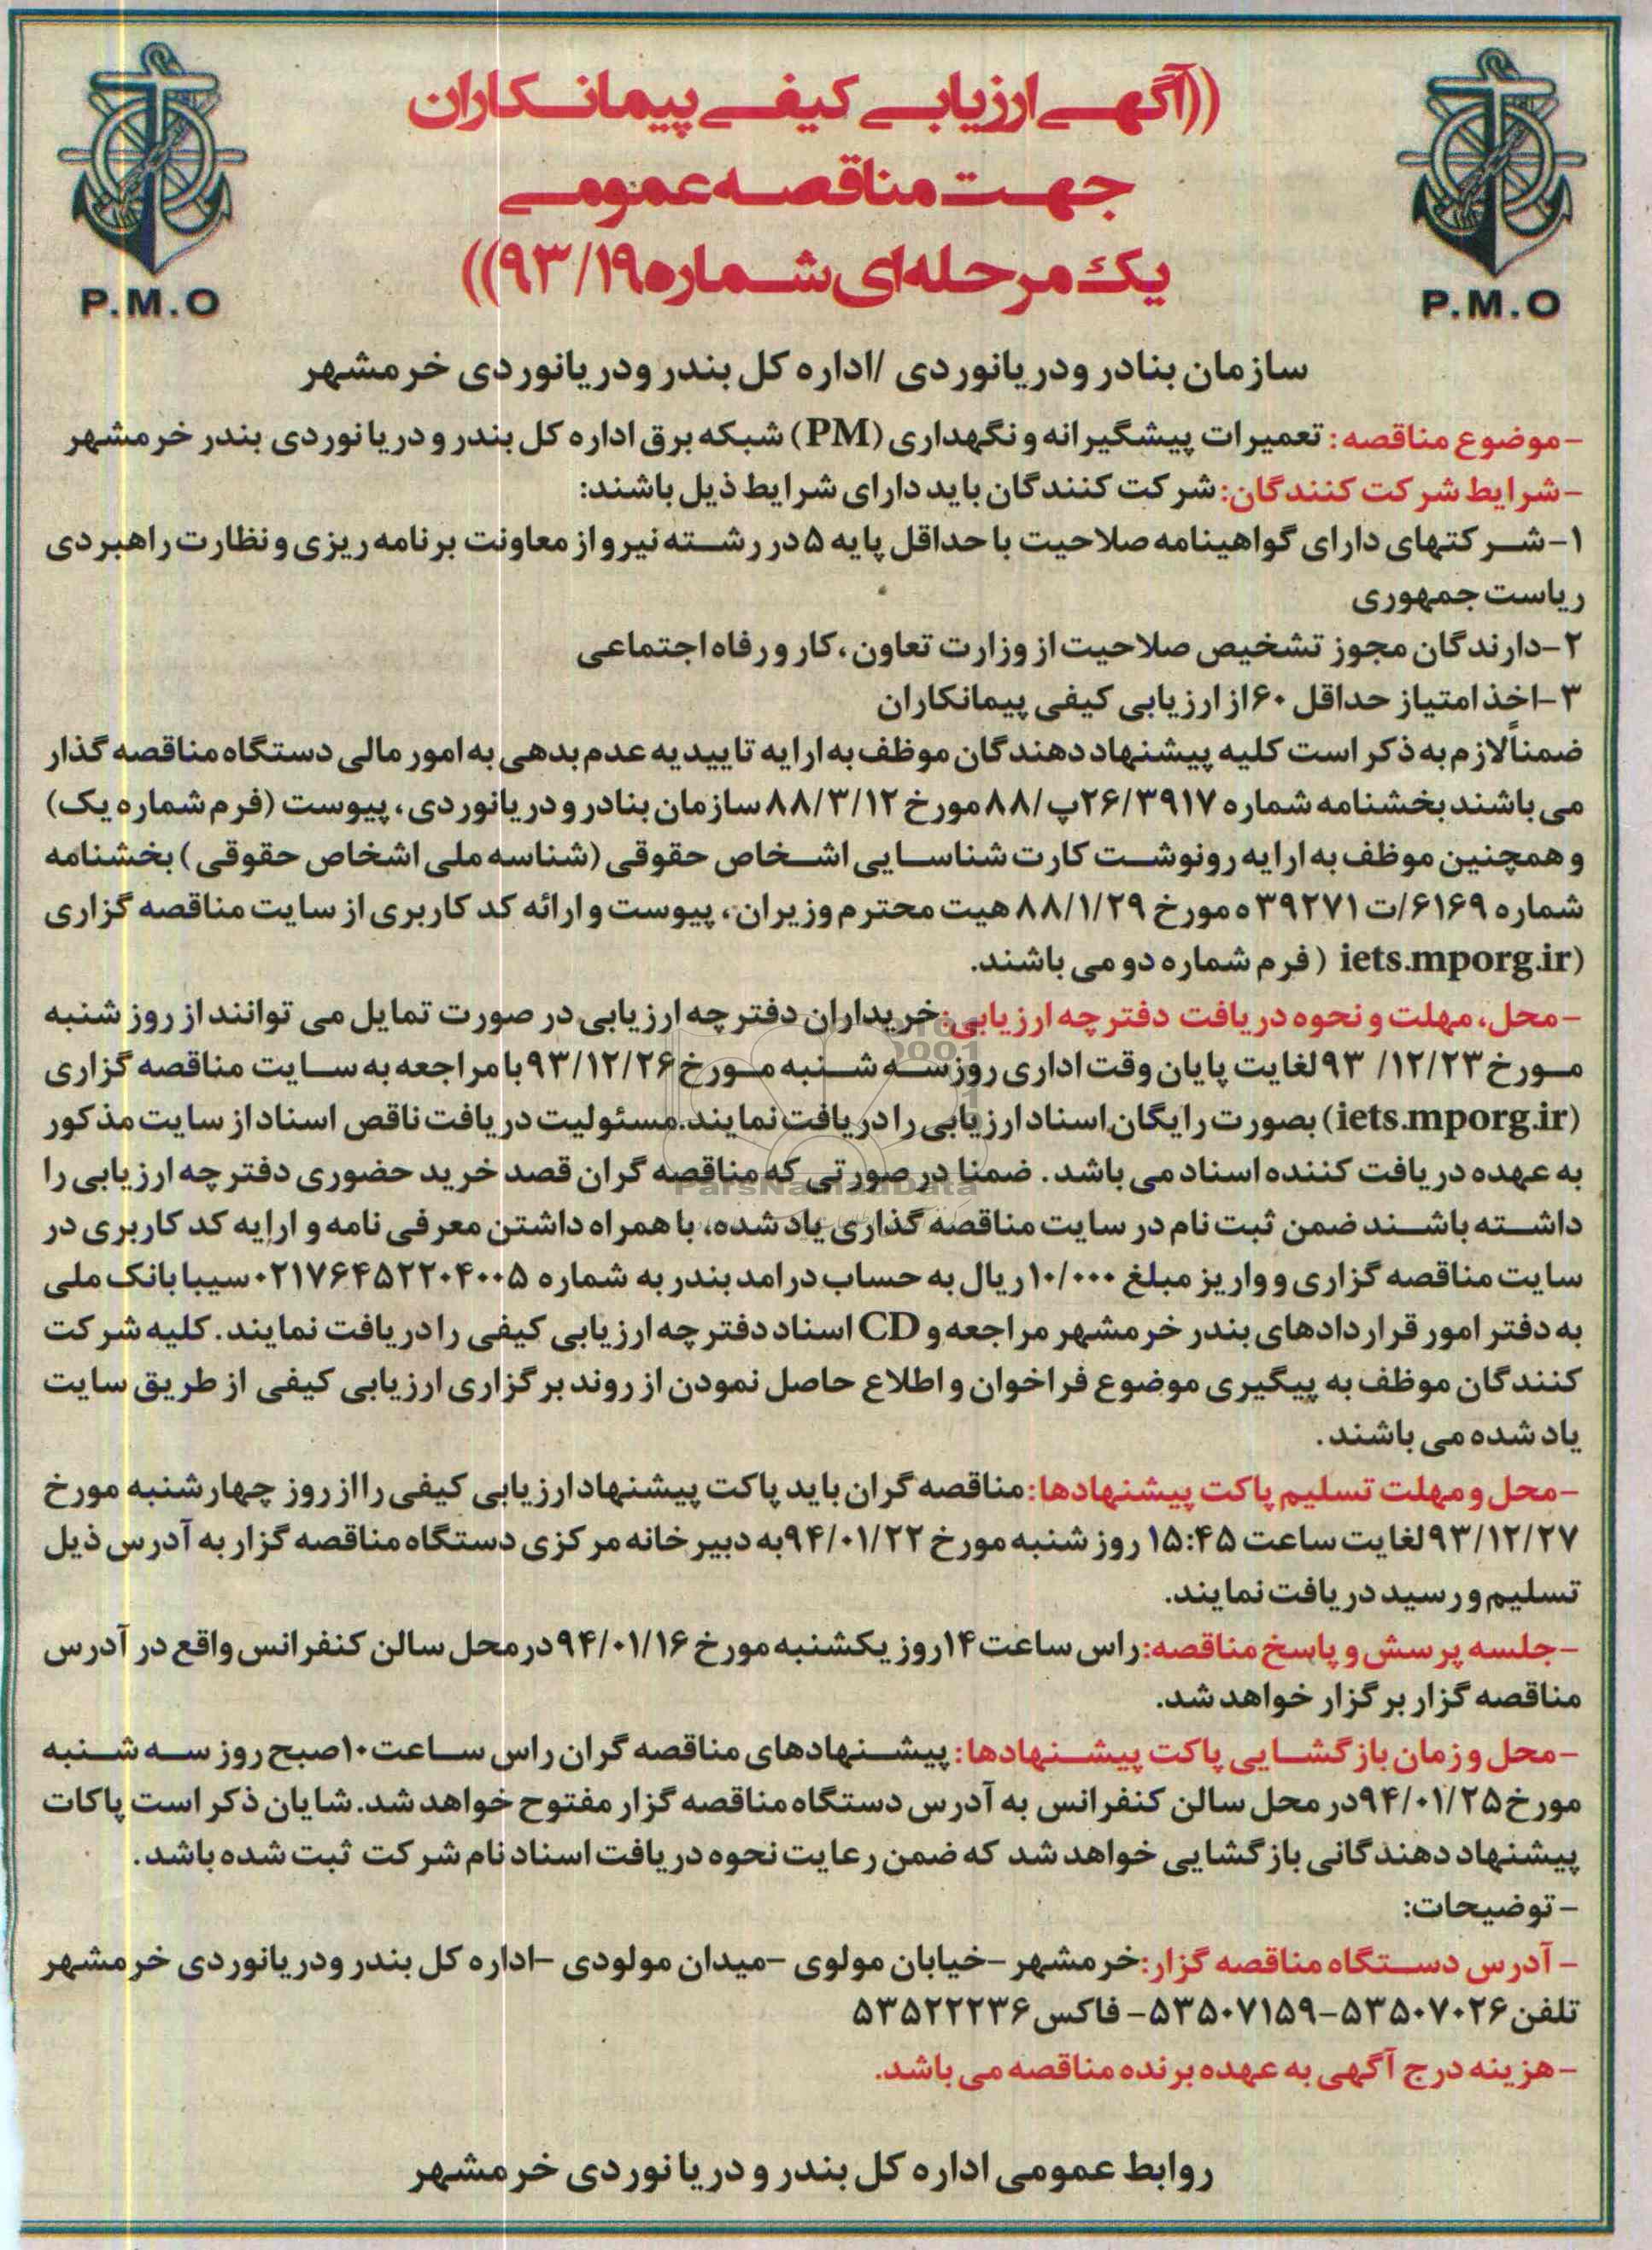 ((آگهی ارزیابی کیفی پیمانکاران
جهت مناقصه عمومی
یک مرحله ای شماره ۹۳/۱۹))
P.M.O
P.M.O
سازمان بنادر ودریانوردی /اداره کل بندر ودریانوردی خرمشهر
-موضوع مناقصه: تعمیرات پیشگیرانه و نگهداری (PM) شبکه برق اداره کل بندر و دریانوردی بندر خرمشهر
-شرایط شرکت کنندگان: شرکت کنندگان باید دارای شرایط ذیل باشند:
۱-شرکتهای دارای گواهینامه صلاحیت با حداقل پایه ۵ در رشته نیرو از معاونت برنامه ریزی و نظارت راهبردی
ریاست جمهوری
۲-دارندگان مجوز تشخیص صلاحیت از وزارت تعاون، کار و رفاه اجتماعی
۳-اخذ امتیاز حداقل ۶۰ از ارزیابی کیفی پیمانکاران
ضمناً لازم به ذکر است کلیه پیشنهاد دهندگان موظف به ارایه تاییدیه عدم بدهی به امور مالی دستگاه مناقصه گذار
می باشند بخشنامه شماره ۲۶/۳۹۱۷پ/۸۸ مورخ ۸۸/۳/۱۲ سازمان بنادر و دریانوردی، پیوست (فرم شماره یک)
و همچنین موظف به ارایه رونوشت کارت شناسایی اشخاص حقوقی (شناسه ملی اشخاص حقوقی) بخشنامه
شماره ۶۱۶۹/ت۳۹۲۷۱ه مورخ ۸۸/۱/۲۹ هیت محترم وزیران، پیوست و ارائه کد کاربری از سایت مناقصه گزاری
(iets.mporg.ir ( فرم شماره دو می باشند.
-محل، مهلت و نحوه دریافت دفترچه ارزیابی: خریداران دفترچه ارزیابی در صورت تمایل می توانند از روز شنبه
مورخ ۹۳/۱۲/۲۳ لغایت پایان وقت اداری روز سه شنبه مورخ ۹۳/۱۲/۲۶ با مراجعه به سایت مناقصه گزاری
(iets.mporg.ir) بصورت رایگان اسناد ارزیابی را دریافت نمایند. مسئولیت دریافت ناقص اسناد از سایت مذکور
به عهده دریافت کننده اسناد می باشد. ضمنا در صورتی که مناقصه گران قصد خرید حضوری دفترچه ارزیابی را
داشته باشند ضمن ثبت نام در سایت مناقصه گذاری یاد شده، با همراه داشتن معرفی نامه و ارایه کد کاربری در
سایت مناقصه گزاری و واریز مبلغ ۱۰/۰۰۰ ریال به حساب درامد بندر به شماره ۰۲۱۷۶۴۵۲۲۰۴۰۰۵ سیبا بانک ملی
به دفتر امور قراردادهای بندر خرمشهر مراجعه و CD اسناد دفترچه ارزیابی کیفی را دریافت نمایند. کلیه شرکت
کنندگان موظف به پیگیری موضوع فراخوان و اطلاع حاصل نمودن از روند برگزاری ارزیابی کیفی از طریق سایت
یاد شده می باشند.
-محل و مهلت تسلیم پاکت پیشنهادها: مناقصه گران باید پاکت پیشنهاد ارزیابی کیفی را از روز چهارشنبه مورخ
۹۳/۱۲/۲۷ لغایت ساعت ۱۵:۴۵ روز شنبه مورخ ۹۴/۰۱/۲۲ به دبیرخانه مرکزی دستگاه مناقصه گزار به آدرس ذیل
تسلیم و رسید دریافت نمایند.
-جلسه پرسش و پاسخ مناقصه: راس ساعت ۱۴ روز یکشنبه مورخ ۹۴/۰۱/۱۶ در محل سالن کنفرانس واقع در آدرس
مناقصه گزار برگزار خواهد شد.
-محل و زمان بازگشایی پاکت پیشنهادها: پیشنهادهای مناقصه گران راس ساعت ۱۰ صبح روز سه شنبه
مورخ ۹۴/۰۱/۲۵ در محل سالن کنفرانس به آدرس دستگاه مناقصه گزار مفتوح خواهد شد. شایان ذکر است پاکات
پیشنهاد دهندگانی بازگشایی خواهد شد که ضمن رعایت نحوه دریافت اسناد نام شرکت ثبت شده باشد.
- توضیحات:
- آدرس دستگاه مناقصه گزار: خرمشهر -خیابان مولوی -میدان مولودی -اداره کل بندر ودریانوردی خرمشهر
تلفن ۵۳۵۰۷۰۲۶-۵۳۵۰۷۱۵۹- فاکس ۵۳۵۲۲۲۳۶
-هزینه درج آگهی به عهده برنده مناقصه می باشد.
روابط عمومی اداره کل بندر و دریانوردی خرمشهر
ParsNamadData